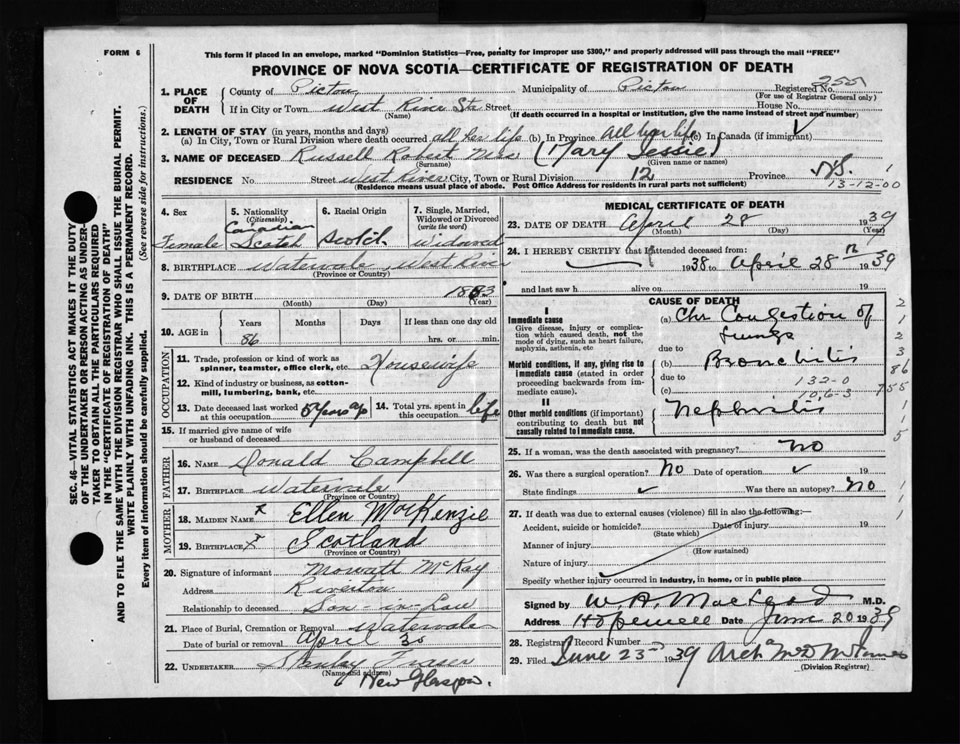 FORM 6
This form if placed in an envelope, marked "Dominion Statistics—Free, penalty for improper use $300," and properly addressed will pass through the mail "FREE"
PROVINCE OF NOVA SCOTIA—CERTIFICATE OF REGISTRATION OF DEATH
1. PLACE OF DEATH
County of Pictou Municipality of Pictou Registered No. 255
(For use of Registrar General only)
If in City or Town West River Sta Street House No.
(Name) (If death occurred in a hospital or institution, give the name instead of street and number)
2. LENGTH OF STAY (in years, months and days)
(a) In City, Town or Rural Division where death occurred all her life (b) In Province all her life (c) In Canada (if immigrant)
3. NAME OF DECEASED Russell Robert Mrs (Mary Jessie)
(Surname) (Given name or names)
RESIDENCE No. Street West River City, Town or Rural Division 12 Province N.S. 1
(Residence means usual place of abode. Post Office Address for residents in rural parts not sufficient) 13-12-00
4. Sex Female
5. Nationality (Citizenship) Canadian Scotch
6. Racial Origin Scotch
7. Single, Married, Widowed or Divorced (write the word) Widowed
8. BIRTHPLACE Watervale West River
(Province or Country)
9. DATE OF BIRTH 1853
(Month) (Day) (Year)
10. AGE IN Years Months Days If less than one day old
86 hrs. or min.
OCCUPATION
11. Trade, profession or kind of work as spinner, teamster, office clerk, etc. Housewife
12. Kind of industry or business, as cotton-mill, lumbering, bank, etc.
13. Date deceased last worked at this occupation 5 years ago
14. Total yrs. spent in this occupation life
15. If married give name of wife or husband of deceased
FATHER
16. NAME Donald Campbell
17. BIRTHPLACE Watervale
(Province or Country)
MOTHER
18. MAIDEN NAME x Ellen MacKenzie
19. BIRTHPLACE x Scotland
(Province or Country)
20. Signature of informant Mowatt McKay
Address Riverton
Relationship to deceased Son-in-Law
21. Place of Burial, Cremation or Removal Watervale
Date of burial or removal April 30
22. UNDERTAKER Stanley
(Name and address)
New Glasgow.
MEDICAL CERTIFICATE OF DEATH
23. DATE OF DEATH April 28 1939
(Month) (Day) (Year)
24. I HEREBY CERTIFY that I attended deceased from:
1938 to April 28th 1939
and last saw h alive on 19
CAUSE OF DEATH
I
Immediate cause
Give disease, injury or complication which caused death, not the mode of dying, such as heart failure, asphyxia, asthenia, etc
(a) Chr Congestion of Lungs
due to
Morbid conditions, if any, giving rise to immediate cause (stated in order proceeding backwards from immediate cause).
(b) Bronchitis
due to 132-0
(c) 106-3
II
Other morbid conditions (if important) contributing to death but not causally related to immediate cause.
Nephritis
2
1
2
3
86
755
1
1
5
1
1
1
25. If a woman, was the death associated with pregnancy? no
26. Was there a surgical operation? No Date of operation 19
State findings Was there an autopsy? no
27. If death was due to external causes (violence) fill in also the following:—
Accident, suicide or homicide? Date of injury 19
(State which)
Manner of injury
(How sustained)
Nature of injury
Specify whether injury occurred in industry, in home, or in public place
Signed by W. A. MacLeod M.D.
Address Hopewell Date June 20 1939
28. Registrar's Record Number
29. Filed June 23rd 1939 Arch
(Division Registrar)
SEC. 46—VITAL STATISTICS ACT MAKES IT THE DUTY
OF THE UNDERTAKER OR PERSON ACTING AS UNDER-
TAKER TO OBTAIN ALL THE PARTICULARS REQUIRED
IN THE "CERTIFICATE OF REGISTRATION OF DEATH"
AND TO FILE THE SAME WITH THE DIVISION REGISTRAR WHO SHALL ISSUE THE BURIAL PERMIT.
WRITE PLAINLY WITH UNFADING INK. THIS IS A PERMANENT RECORD.
Every item of information should be carefully supplied. (See reverse side for instructions.)